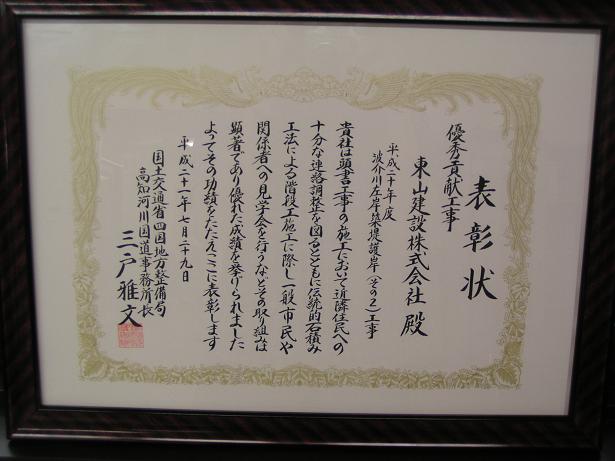 表彰状
優秀貢献工事
東山建設株式会社 殿
平成二十年度
波介川左岸築堤護岸(その2)工事
貴社は頭書工事の施工において近隣住民への
十分な連絡調整を図るとともに伝統的石積み
工法による階段工施工に際し一般市民や
関係者への見学会を行うなどその取り組みは
顕著であり優れた成績を挙げられました
よってその功績をたたえここに表彰します
平成二十一年七月二十九日
国土交通省四国地方整備局
高知河川国道事務所長
三戸雅文